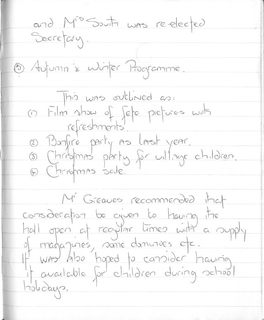 and Mrs South was re-elected
Secretary.
⑤ Autumn & Winter Programme.
This was outlined as:
① Film show of fete pictures with
refreshments.
② Bonfire party as last year.
③ Christmas party for village children.
④ Christmas sale.
Mr Greaves recommended that
consideration be given to having the
hall open at regular times with a supply
of magazines, some dominoes etc.
It was also hoped to consider having
it available for children during school
holidays.